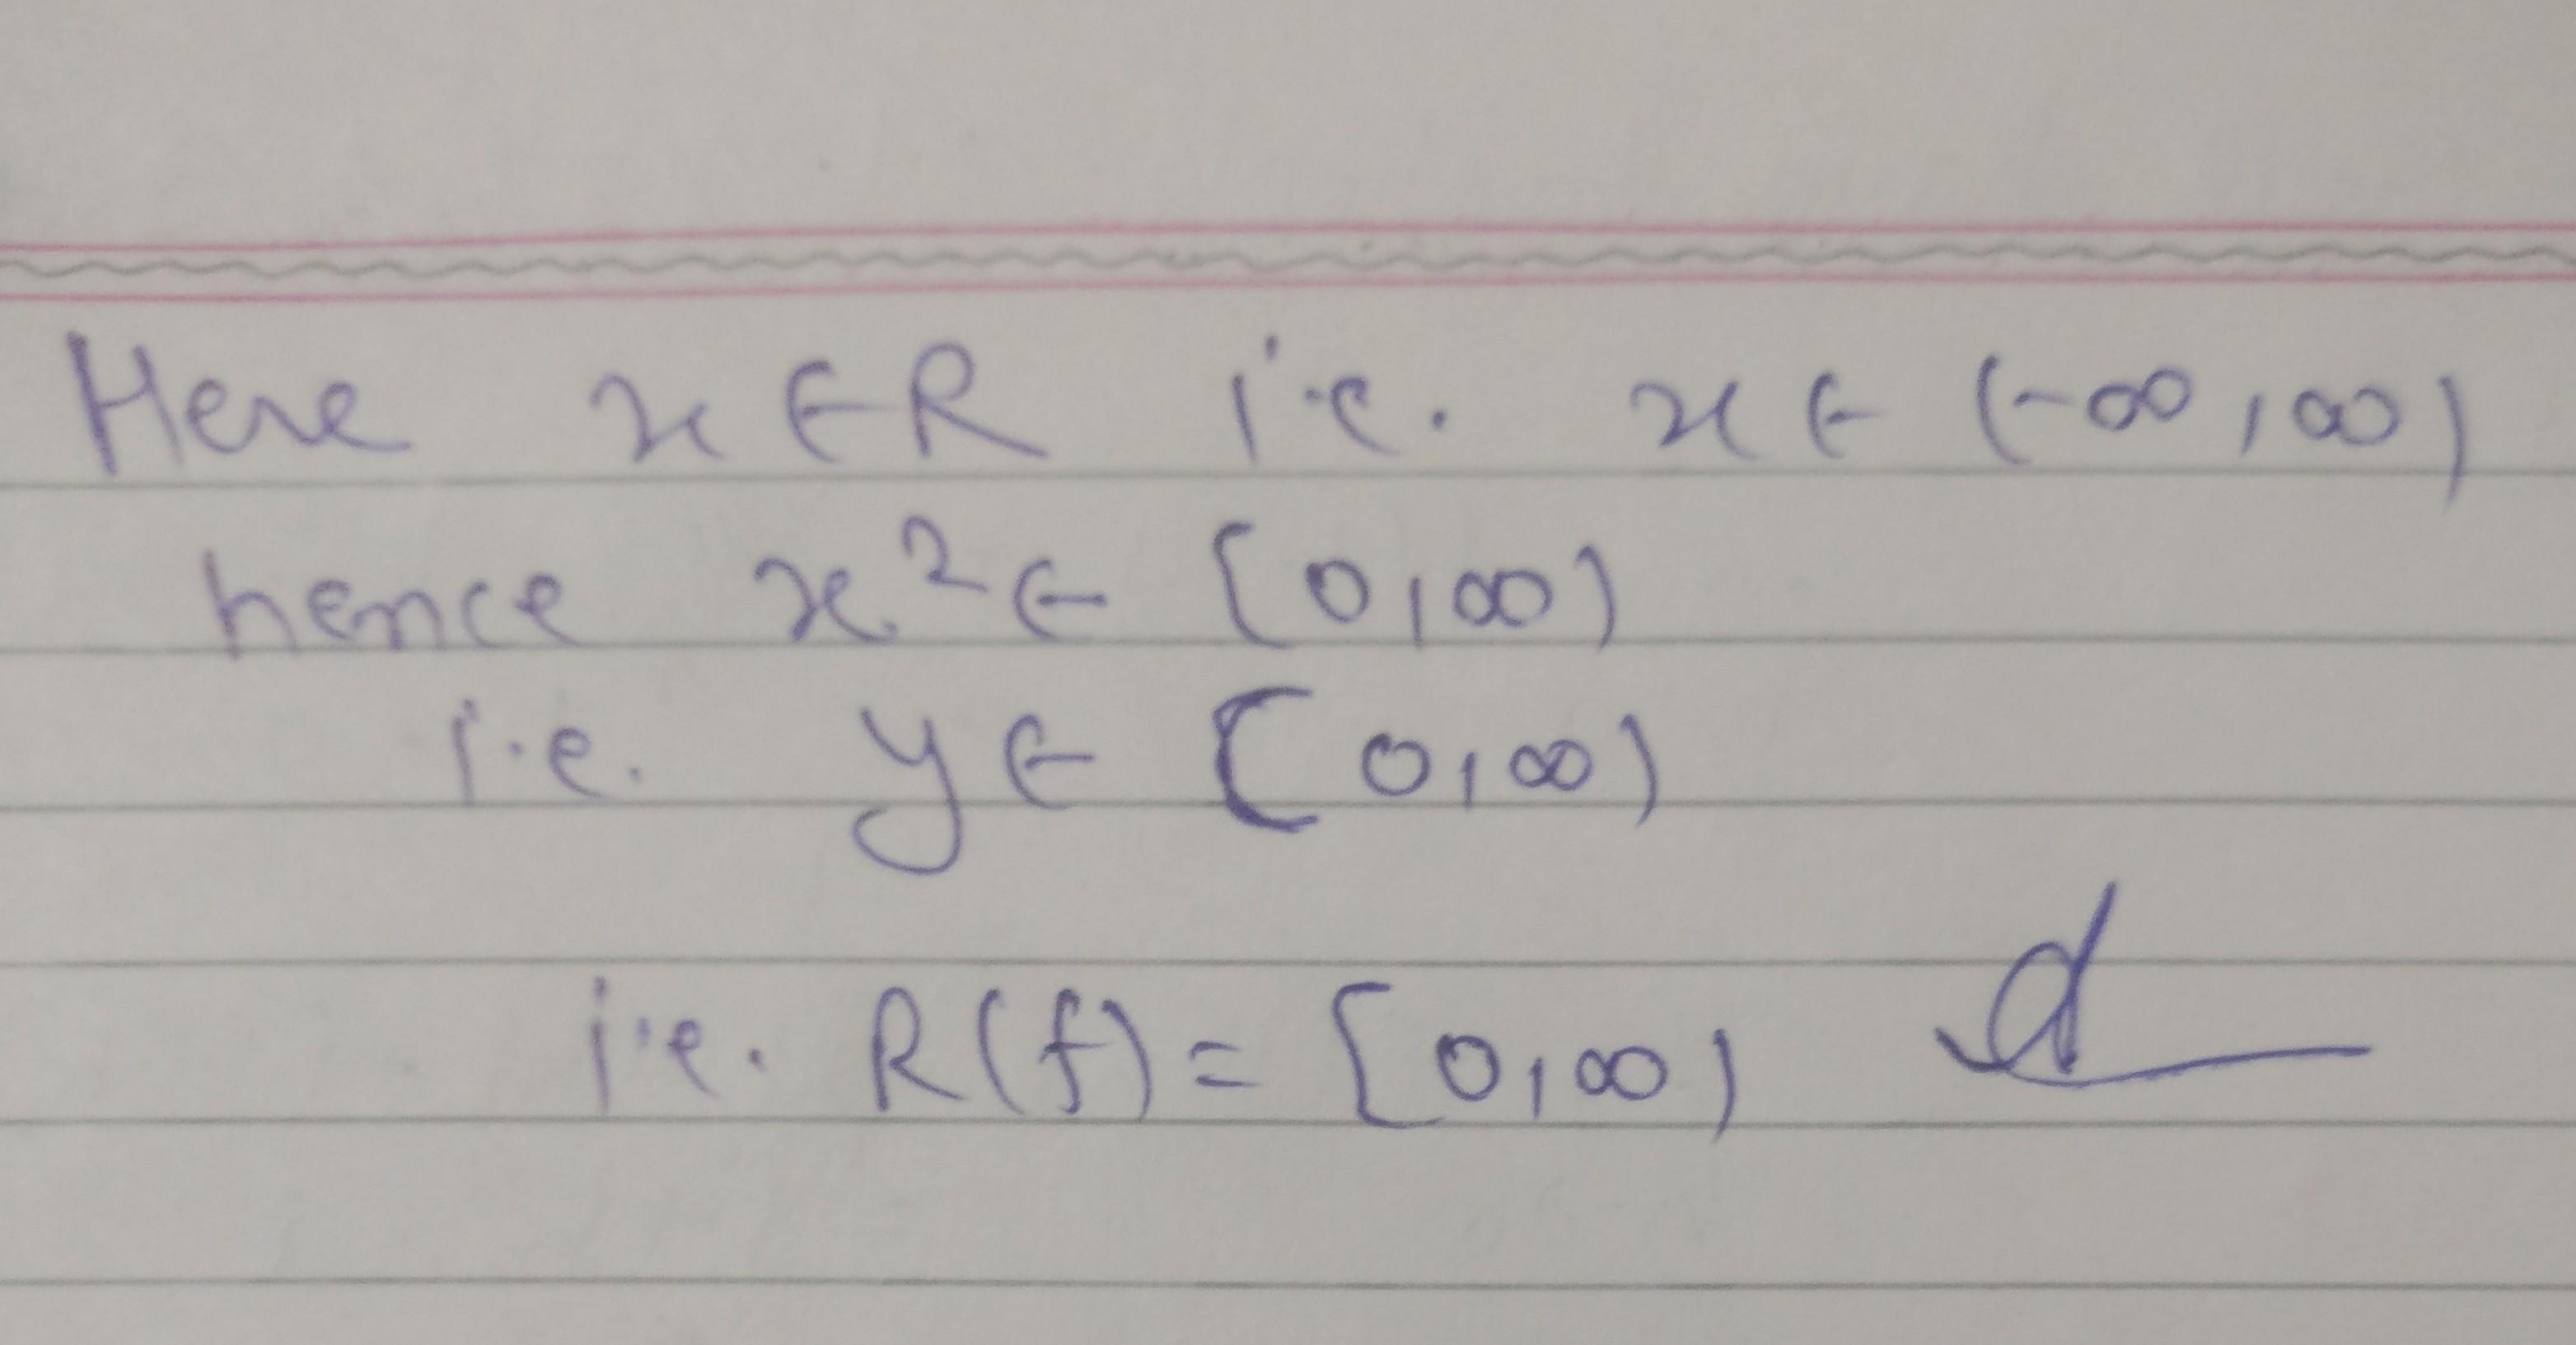 Here x ∈ R i.e. x ∈ (-∞, ∞)
hence x² ∈ [0, ∞)
i.e. y ∈ [0, ∞)
i.e. R(f) = [0, ∞)